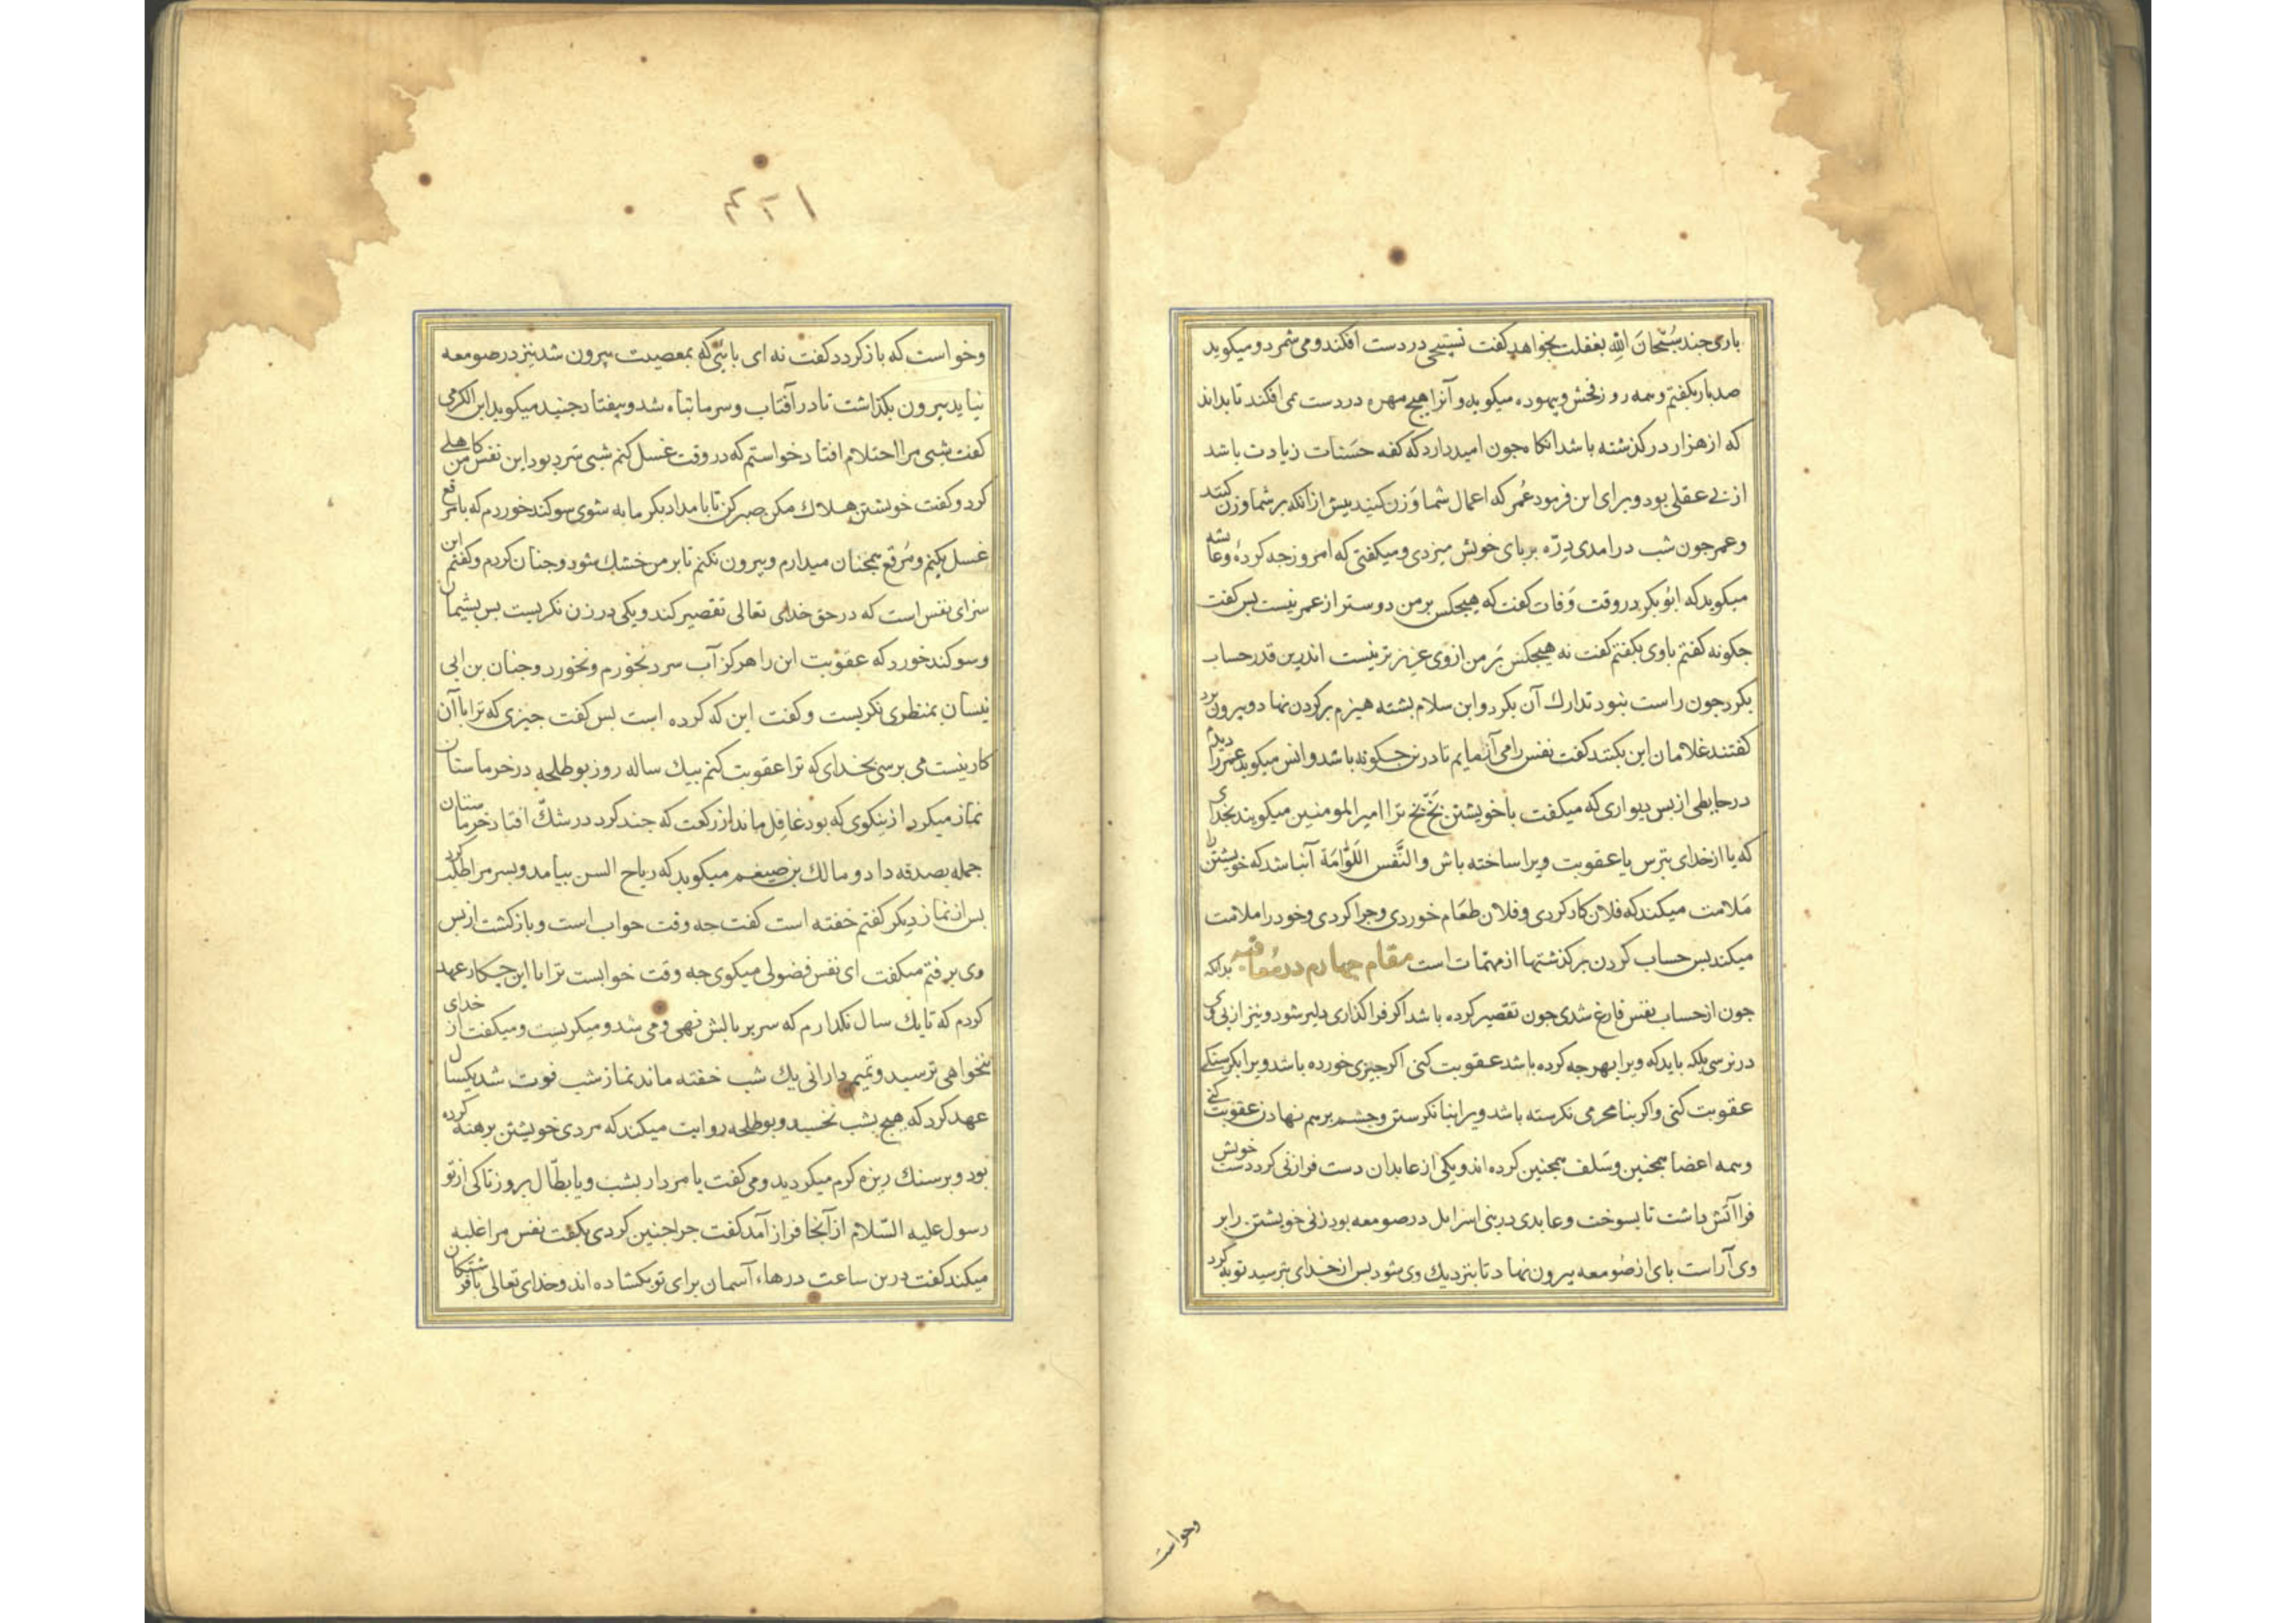 باری چند سُبْحانَ اللّهِ بغفلت بخواهد گفت تسبیحی در دست افکند و می شمرد و میکوید
صدبار بکفتم و همه روز فحش و بیهوده میکوید و آنرا هیچ مهره در دست نمی افکند تا بداند
که از هزار در کذشته باشد انکاه جون امید دارد که کفه حَسَنات زیادت باشد
از بی عقلی بود و برای این فرمود عُمر که اعمال شما وَزن کنید بیش از انکه بر شما وزن کنند
و عمر جون شب درامدی دِرّه بر پای خویش میزدی و میکفتی که امروز جه کردهٔ و عایشه
میکوید که ابُوبکر در وقت وَفات کفت که هیجکس بر من دوستر از عمر نیست بس کفت
جکونه کفتم با وی بکفتم کفت نه هیجکس بَر من از وی عزیزتر نیست اندرین قدر حساب
بکرد جون راست بنود تدارك آن بکرد و ابن سلام بشته هیزم بر کردن نهاد و بیرون برد
کفتند غلامان این بکنند کفت نفس را می آزمایم تا درین جکونه باشد و انس میکوید عمر را دیدم
در حایطی از بس دیواری که میکفت با خویشتن بَخّ بَخ ترا امیرالمومنین میکویند بخدای
که یا از خدای بترس یا عقوبت ویرا ساخته باش و النَّفس اللَوّامَة آنباشد که خویشتن را
مَلامت میکند که فلان کار کردی و فلان طعَام خوردی و جرا کردی و خود را ملامت
میکند بس حساب کردن بر کذشتها از مهمّات است مقام چهارم در مُعاقبه بدانکه
جون از حساب نفس فارغ شدی جون تقصیر کرده باشد اکر فرا کذاری دلیر شود و نیز از بی وی
در نرسی بلکه باید که ویرا بهر جه کرده باشد عقوبت کنی اکر جیزی خورده باشد ویرا بکرسنکی
عقوبت کنی و اکر بنا محرمی نکرسته باشد ویرا بنا نکرستن و جشم برهم نهادن عقوبت کنی
و همه اعضا همجنین و سَلف همجنین کرده اند و یکی از عابدان دست فرا زنی کرد دست خویش
فرا آتش داشت تا بسوخت و عابدی در بنی اسرایل در صومعه بود زنی خویشتن را بر
وی آراست بای از صَومعه بیرون نهاد تا بنزدیك وی شود بس از خدای بترسید توبه کرد
وخواست
۴۲۱
وخواست که باز کردد کفت نه ای بایی که بمعصیت بیرون شد نیز در صومعه
نیاید بیرون بکذاشت تا در آفتاب و سرما تباه شد و بیفتاد جنید میکوید ابن الکرمی
کفت شبی مرا احتلام افتاد خواستم که در وقت غسل کنم شبی سَرد بود این نفس من کاهلی
کرد و کفت خویشتن هلاك مکن صبر کن تا بامداد بکرمابه شوی سوکند خوردم که با مرقع
غسل بکنم و مُرقع همجنان میدارم و بیرون نکنم تا بر من خشك شود و جنان کردم و کفتم این
سزای نفس است که در حق خدای تعالی تقصیر کند و یکی در زن نکریست بس بشیمان
و سوکند خورد که عقوبت این را هرکز آب سرد نخورم و نخورد و جنان بن ابی
نیسان بمنظری نکریست و کفت این که کرده است بس کفت جیزی که ترا با آن
کار نیست می برسی بخدای که ترا عقوبت کنم بیك ساله روز بوطلحه در خرماستان
نماز میکرد از نیکوی که بود غافل ماند از رکعت که جند کرد در شكّ افتاد خرماستان
جمله بصدقه داد و مالك بن ضیغم میکوید که ریاح السن بیامد و بسر مرا طلب کرد
بس از نماز دیکر کفتم خفته است کفت جه وقت خواب است و باز کشت از بس
وی برفتم میکفت ای نفس فضولی میکوی جه وقت خوابست ترا با این جکار عهد
کردم که تا یك سال نکذارم که سر بر بالش نهی و می شد و میکریست و میکفت از خدای
نخواهی ترسید و تمیم دارانی یك شب خفته ماند نماز شب فوت شد یکسال
عهد کرد که هیج بشب نخسبد و بوطلحه روایت میکند که مردی خویشتن برهنه کرده
بود و بر سنك ریزه کرم میکردید و می کفت یا مردار بشب و یا بطّال بروز تا کی از تو
رسول علیه السّلام از آنجا فراز آمد کفت جرا جنین کردی بکفت نفس مرا غلبه
میکند کفت درین ساعت درهاء آسمان برای تو بکشاده اند و خدای تعالی با فرشتکان